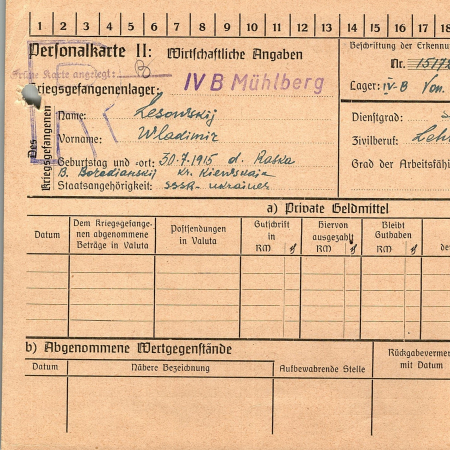 1 2 3 4 5 6 7 8 9 10 11 12 13 14 15 16 17 18
Personalkarte II: Wirtschaftliche Angaben
Beschriftung der Erkennu
Karte angelegt:
Nr. 15172
Kriegsgefangenenlager: IV B Mühlberg
Lager: IV-B
Des Kriegsgefangenen
Name: Lesowskij
Dienstgrad:
Vorname: Wladimir
Zivilberuf: Leh
Geburtstag und -ort: 30.7.1915 d. Raska
Grad der Arbeitsfäh
B. Borodianskij Kr. Kiewskaja
Staatsangehörigkeit: sssr-ukrainer
a) Private Geldmittel
Datum
Dem Kriegsgefange-
nen abgenommene
Beträge in Valuta
Postsendungen
in Valuta
Gutschrift
in
RM
Hiervon
ausgezahlt
RM
Bleibt
Guthaben
RM
de
b) Abgenommene Wertgegenstände
Datum
Nähere Bezeichnung
Aufbewahrende Stelle
Rückgabeverme
mit Datum